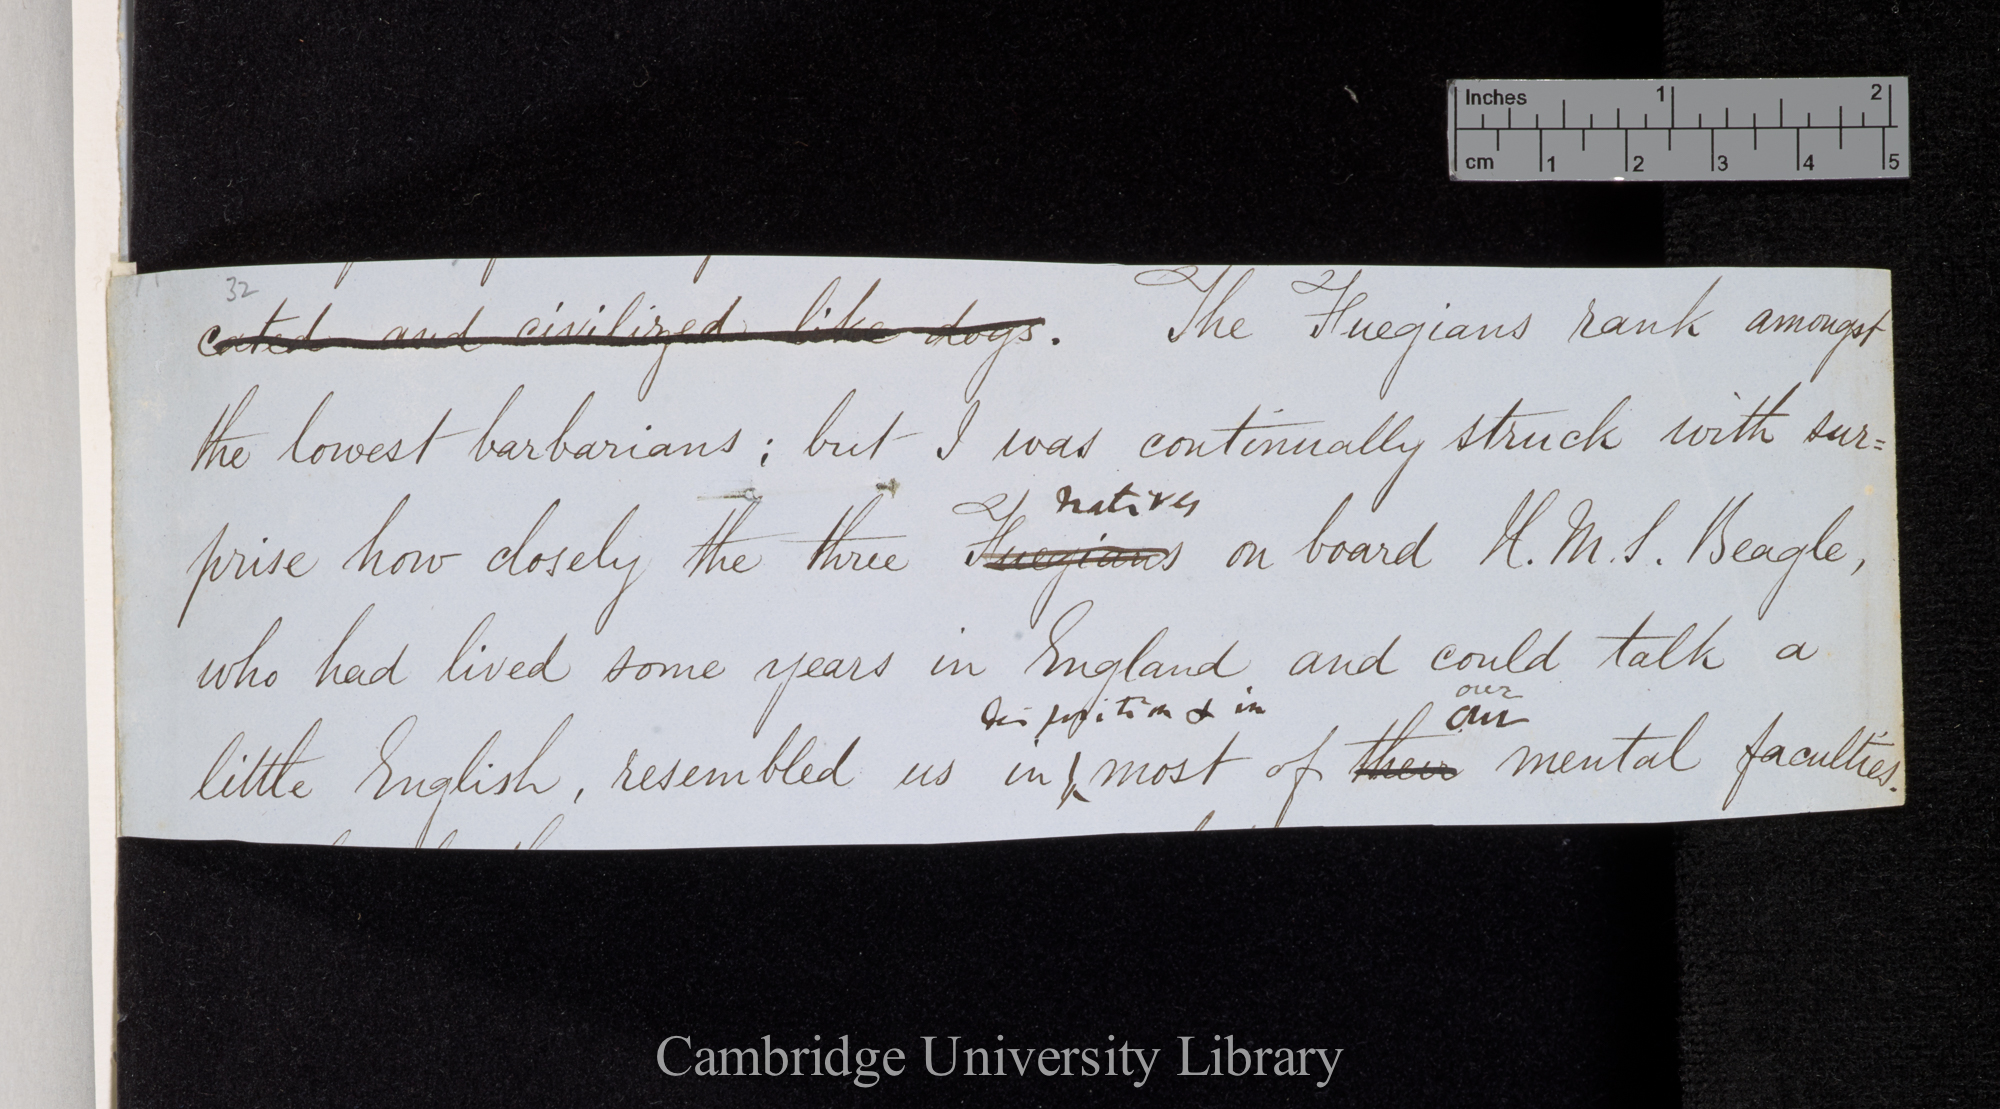 Inches 1 2
cm 1 2 3 4 5
32
cated and civilized like dogs. The Fuegians rank amongst
the lowest barbarians; but I was continually struck with sur=
natives
prise how closely the three Fuegians on board H.M.S. Beagle,
who had lived some years in England and could talk a
our
disposition & in our
little English, resembled us in most of their mental faculties.
Cambridge University Library